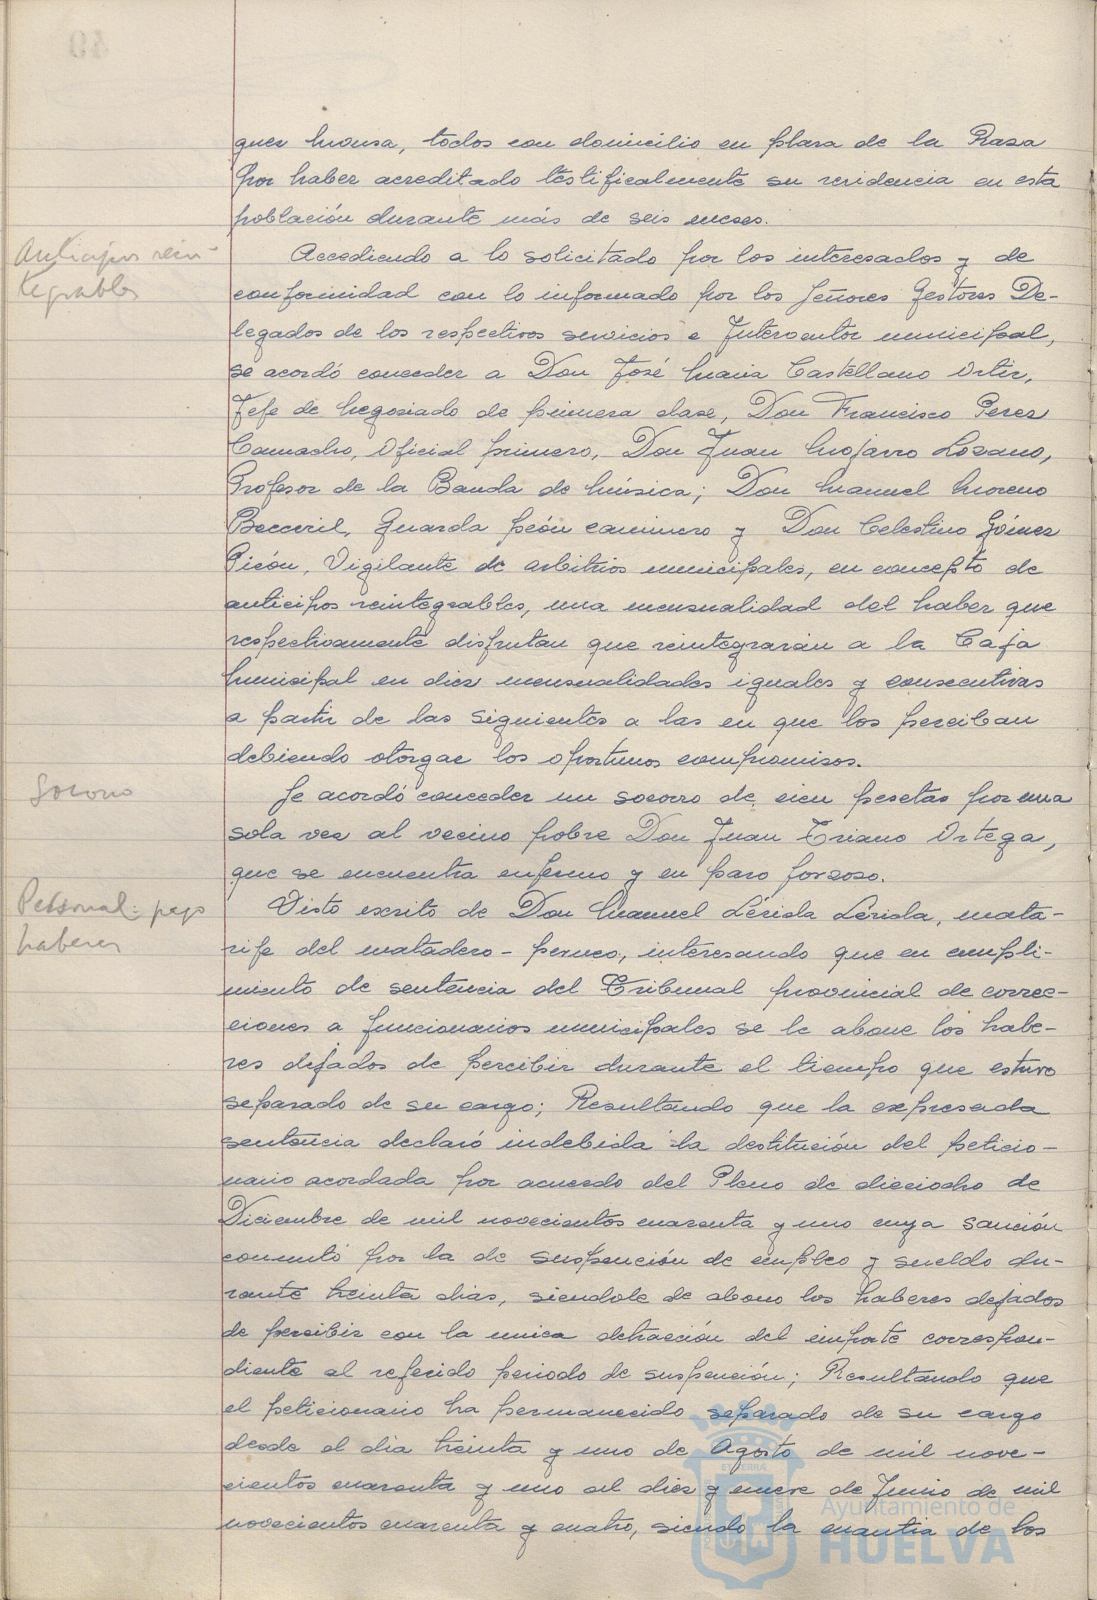 guez Mousa, todos con domicilio en plaza de la Rasa
por haber acreditado testificalmente su residencia en esta
población durante más de seis meses.
Anticipos rein-
tegrables
Accediendo a lo solicitado por los interesados y de
conformidad con lo informado por los Señores Gestores De-
legados de los respectivos servicios e Interventor municipal,
se acordó conceder a Don José María Castellano Ortiz,
Jefe de Negociado de primera clase, Don Francisco Perez
Camacho, Oficial primero, Don Juan Mojarro Lozano,
Profesor de la Banda de Música; Don Manuel Moreno
Becerril, Guarda peón caminero y Don Celestino Gómez
Picón, Vigilante de arbitrios municipales, en concepto de
anticipos reintegrables, una mensualidad del haber que
respectivamente disfrutan que reintegrarán a la Caja
Municipal en diez mensualidades iguales y consecutivas
a partir de las siguientes a las en que los perciban
debiendo otorgar los oportunos compromisos.
Socorro
Se acordó conceder un socorro de cien pesetas por una
sola vez al vecino pobre Don Juan Triano Ortega,
que se encuentra enfermo y en paro forzoso.
Personal: pago
haberes
Visto escrito de Don Manuel Lérida Lérida, mata-
rife del matadero-, interesando que en cumpli-
miento de sentencia del Tribunal provincial de correc-
ciones a funcionarios municipales se le abone los habe-
res dejados de percibir durante el tiempo que estuvo
separado de su cargo; Resultando que la expresada
sentencia declaró indebida la destitución del peticio-
nario acordada por acuerdo del Pleno de dieciocho de
Diciembre de mil novecientos cuarenta y uno cuya sanción
conmutó por la de suspención de empleo y sueldo du-
rante treinta dias, siendole de abono los haberes dejados
de percibir con la unica detracción del importe correspon-
diente al referido periodo de suspención; Resultando que
el peticionario ha permanecido separado de su cargo
desde el dia treinta y uno de Agosto de mil nove-
cientos cuarenta y uno al diez y nueve de Junio de mil
novecientos cuarenta y cuatro, siendo la cuantia de los
Ayuntamiento de
HUELVA